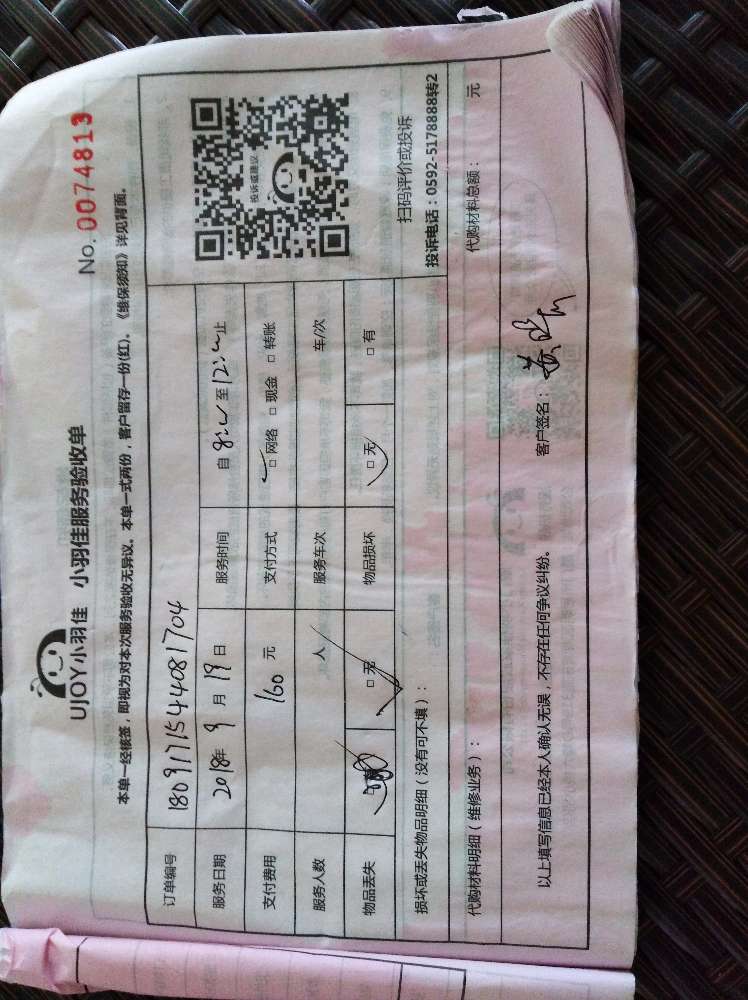 UJOY小羽佳 小羽佳服务验收单
No. 0074813
本单一经核签，即视为对本次服务验收无异议。本单一式两份，客户留存一份(红)。《维保须知》详见背面。
订单编号 1809171544081704
服务日期 2018年 9 月 19 日 服务时间 自 8: 至 12: 止
支付费用 160 元 支付方式 □ 网络 □ 现金 □ 转账
服务人数 人 服务车次 车/次
物品丢失 □ □ 无 物品损坏 □ 无 □ 有
投诉或建议
扫码评价或投诉
投诉电话：0592-5178888转2
损坏或丢失物品明细（没有可不填）：
代购材料明细（维修业务）： 代购材料总额： 元
以上填写信息已经本人确认无误，不存在任何争议纠纷。 客户签名：